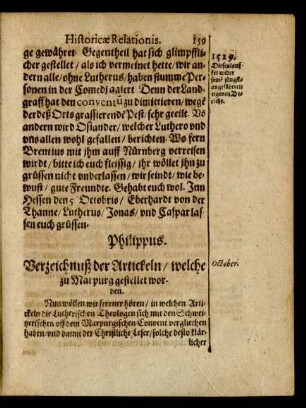 Historicæ Relationis. 159
ge gewähret. Gegentheil hat sich glimpfli-
cher gestellet / als ich vermeinet hette / wir an-
dern alle / ohne Lutherus / haben stumme Per-
sonen in der Comedi agiert. Denn der Land-
graff hat den conventũ zu dimittieren / wege
der deß Orts grassierende Pest sehr geeilt. Vō
andern wird Osiander / welcher Luthero vnd
vns allen wohl gefallen / berichten. Wo fern
Brentius mit jhm auff Nürnberg verreisen
wirdt / bitte ich euch fleissig / jhr wöllet jhn zu
grüssen nicht vnderlassen / wir seindt / wie be-
wust / gute Freundte. Gehabt euch wol. Inn
Hessen den 5. Octobris / Eberhardt von der
Thanne / Lutherus / Jonas / vnd Caspar las-
sen euch grüssen.
Philippus.
Verzeichnuß der Artickeln / welche
zu Marpurg gestellet wor-
den.
Nun wöllen wir ferrner hören / in welchen Arti-
ckeln die Lutherischen Theologen sich mit den Schwei-
tzerischen off dem Marpurgischen Convent verglichen
haben / vnd damit der Christliche Leser / solche desto klär-
licher
1529.
October.